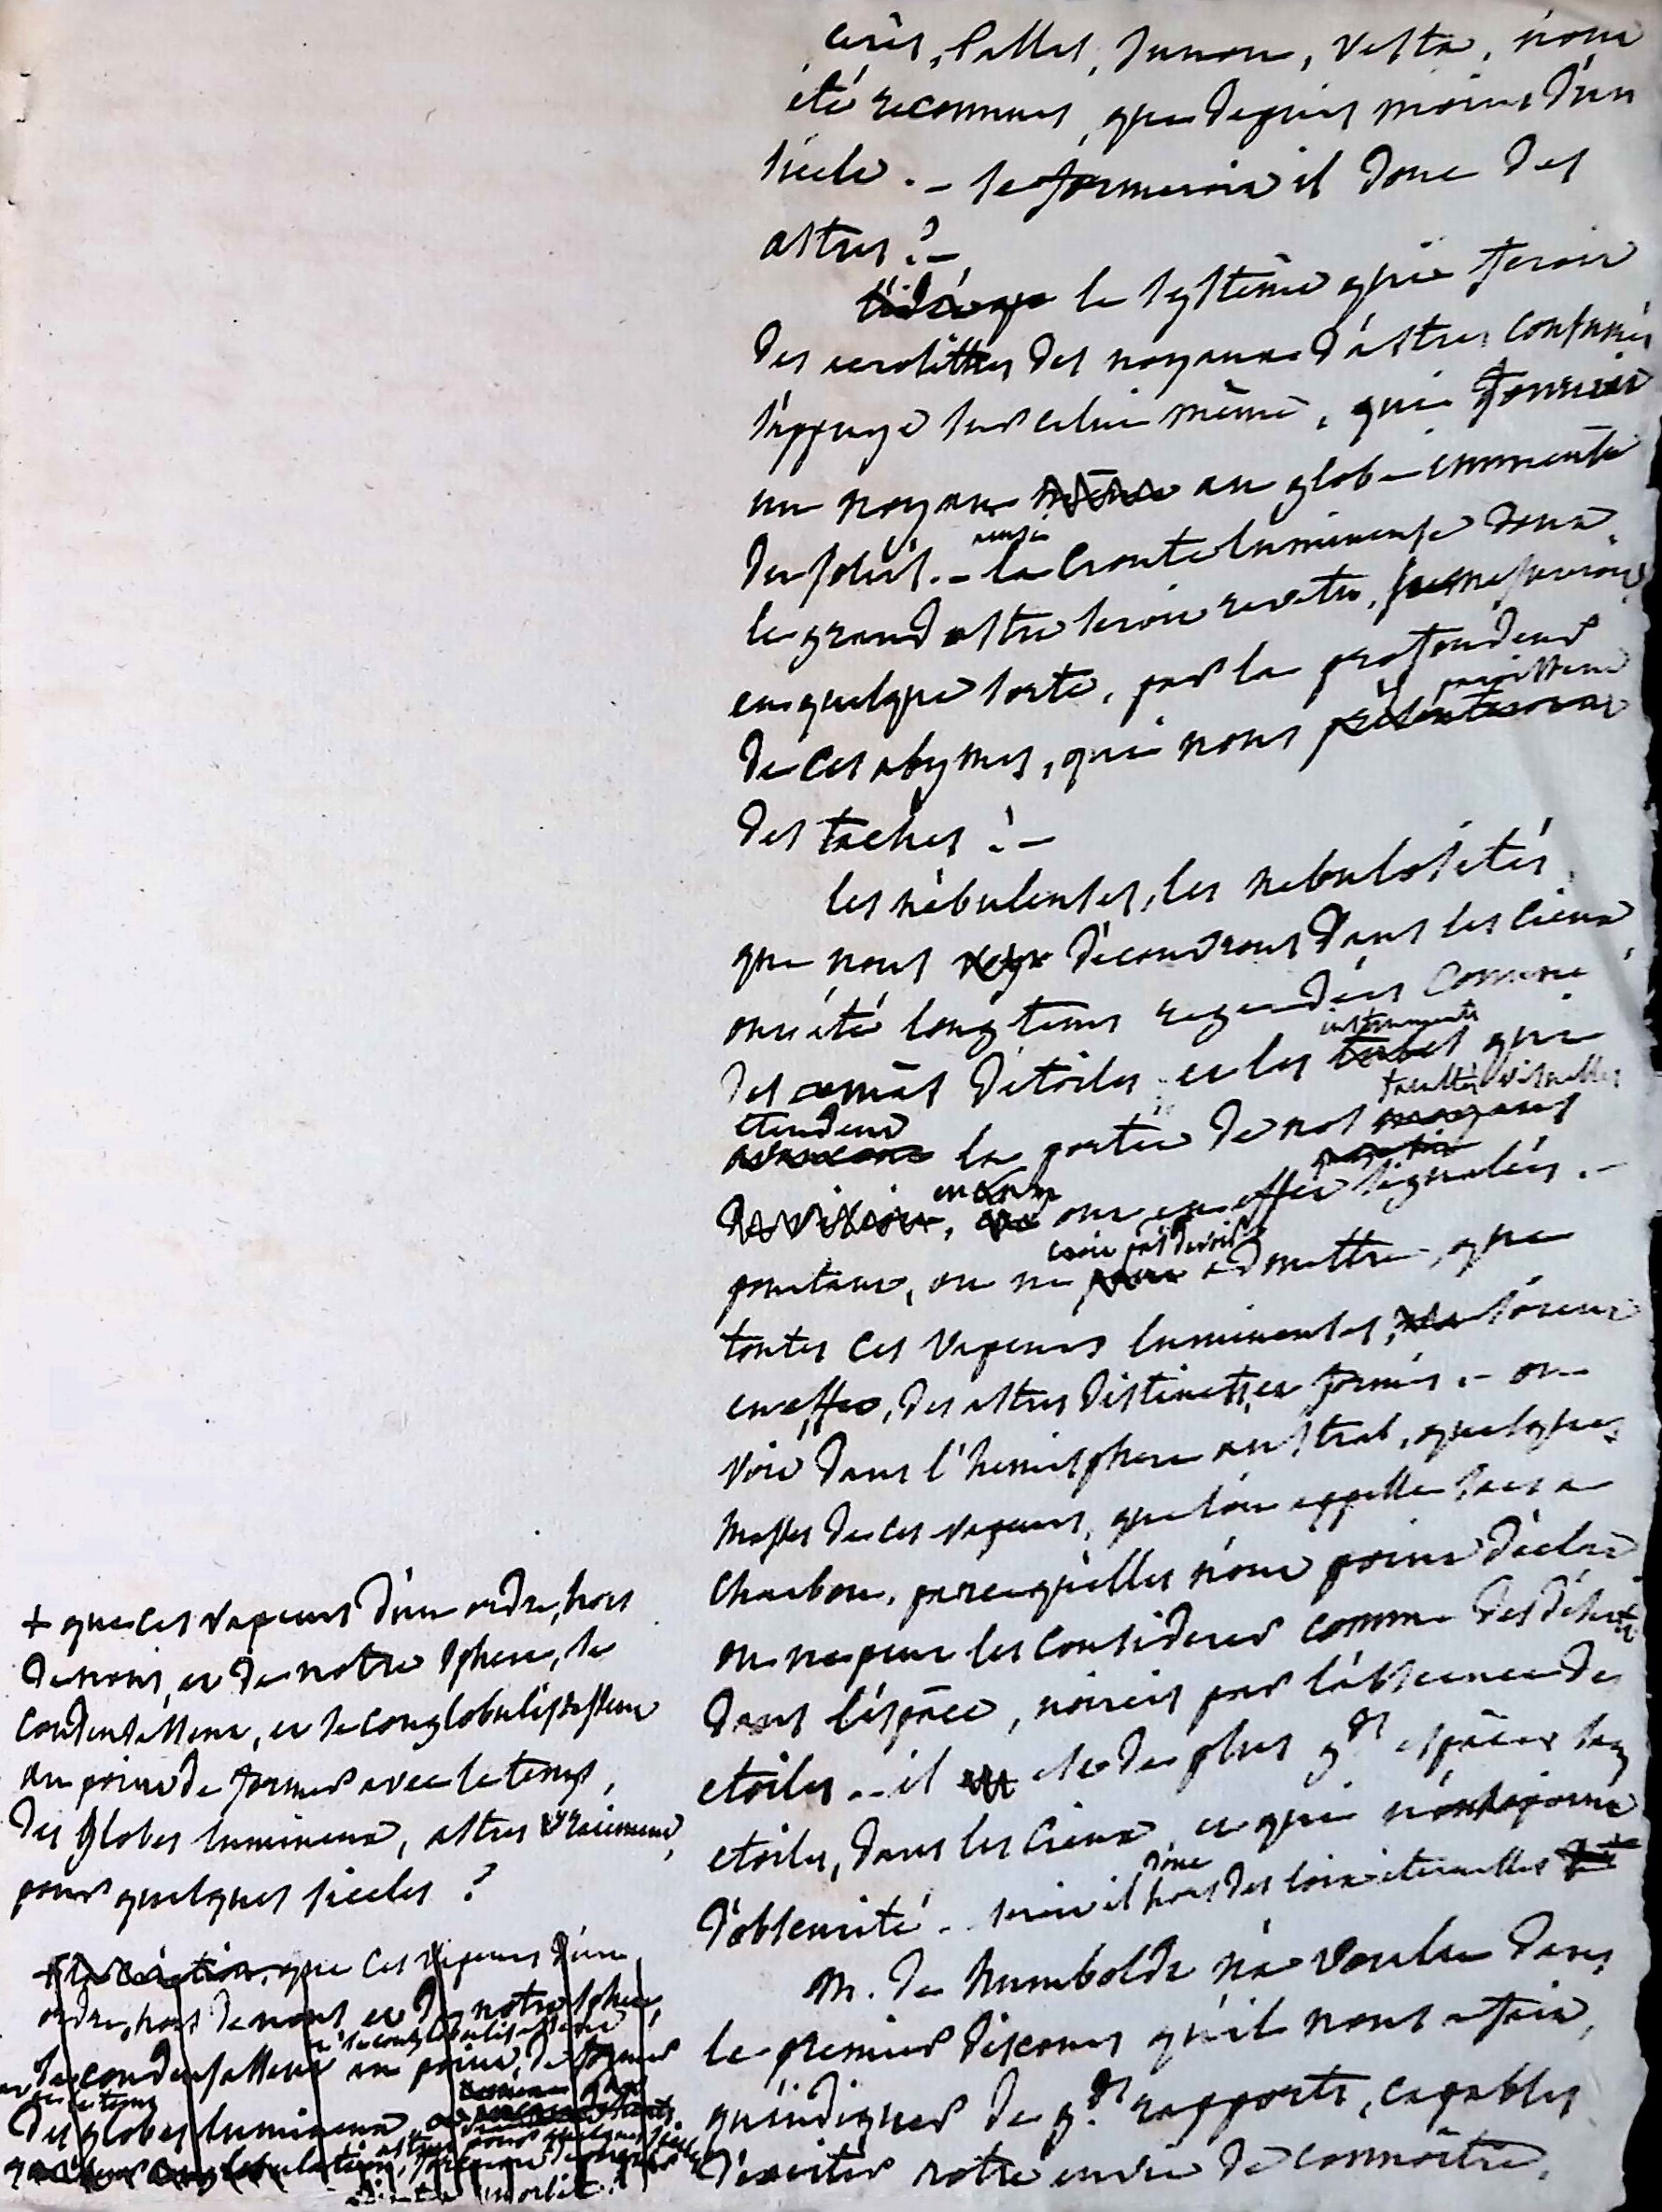 cérès, Pallas, Junon, Vesta, n'ont
été reconnues, que depuis moins d'un
siècle. – se formeroit il donc des
astres ? –
le systême qui feroit
des aerolithes des noyaux d'astres consumés
s'appuye sur celui même, qui donneroit
un noyau au globe immense
du soleil. – ainsi la croute lumineuse dont
le grand astre seroit revetu, se mesureroit
en quelque sorte, par la profondeur
de ces abymes, qui nous paroissent
des taches ! –
les nébuleuses, les nebulosités
que nous découvrons dans les cieux
ont été longtems regardées comme
des amas d'étoiles et les instruments qui
etendent la portée de nos facultés visuelles
en ont en effet signalées. –
pourtant, on ne croit pas devoir admettre que
toutes ces vapeurs lumineuses, soient
en effet, des astres distincts, et formés. – on
voit dans l'hemisphere austral, quelques
masses de ces vapeurs, que l'on appelle sacs a
charbon, parcequ'elles n'ont point d'éclat
on ne peut les considerer comme des déserts
dans l'espace, noircis par l'absence des
etoiles. – il est de plus gds espaces sans
etoiles, dans les cieux, et qui n'ont point
d'obscurité. – seroit il donc hors des loix eternelles
+ que ces vapeurs d'un ordre, hors
de nous, et de notre sphere, se
condensassent, et se conglobulisassent
au point de former avec le temps,
des globes lumineux, astres vraiement,
pour quelques siecles ?
que ces vapeurs d'un
ordre, hors de nous et de notre sphere,
et se conglobulisassent
se condensassent au point de former
avec le tems
des globes lumineux
M. de humboldt n'a voulu dans
le premier discours qu'il nous a fait,
qu'indiquer de gds rapports, capables
d'exciter notre envie de connoître.